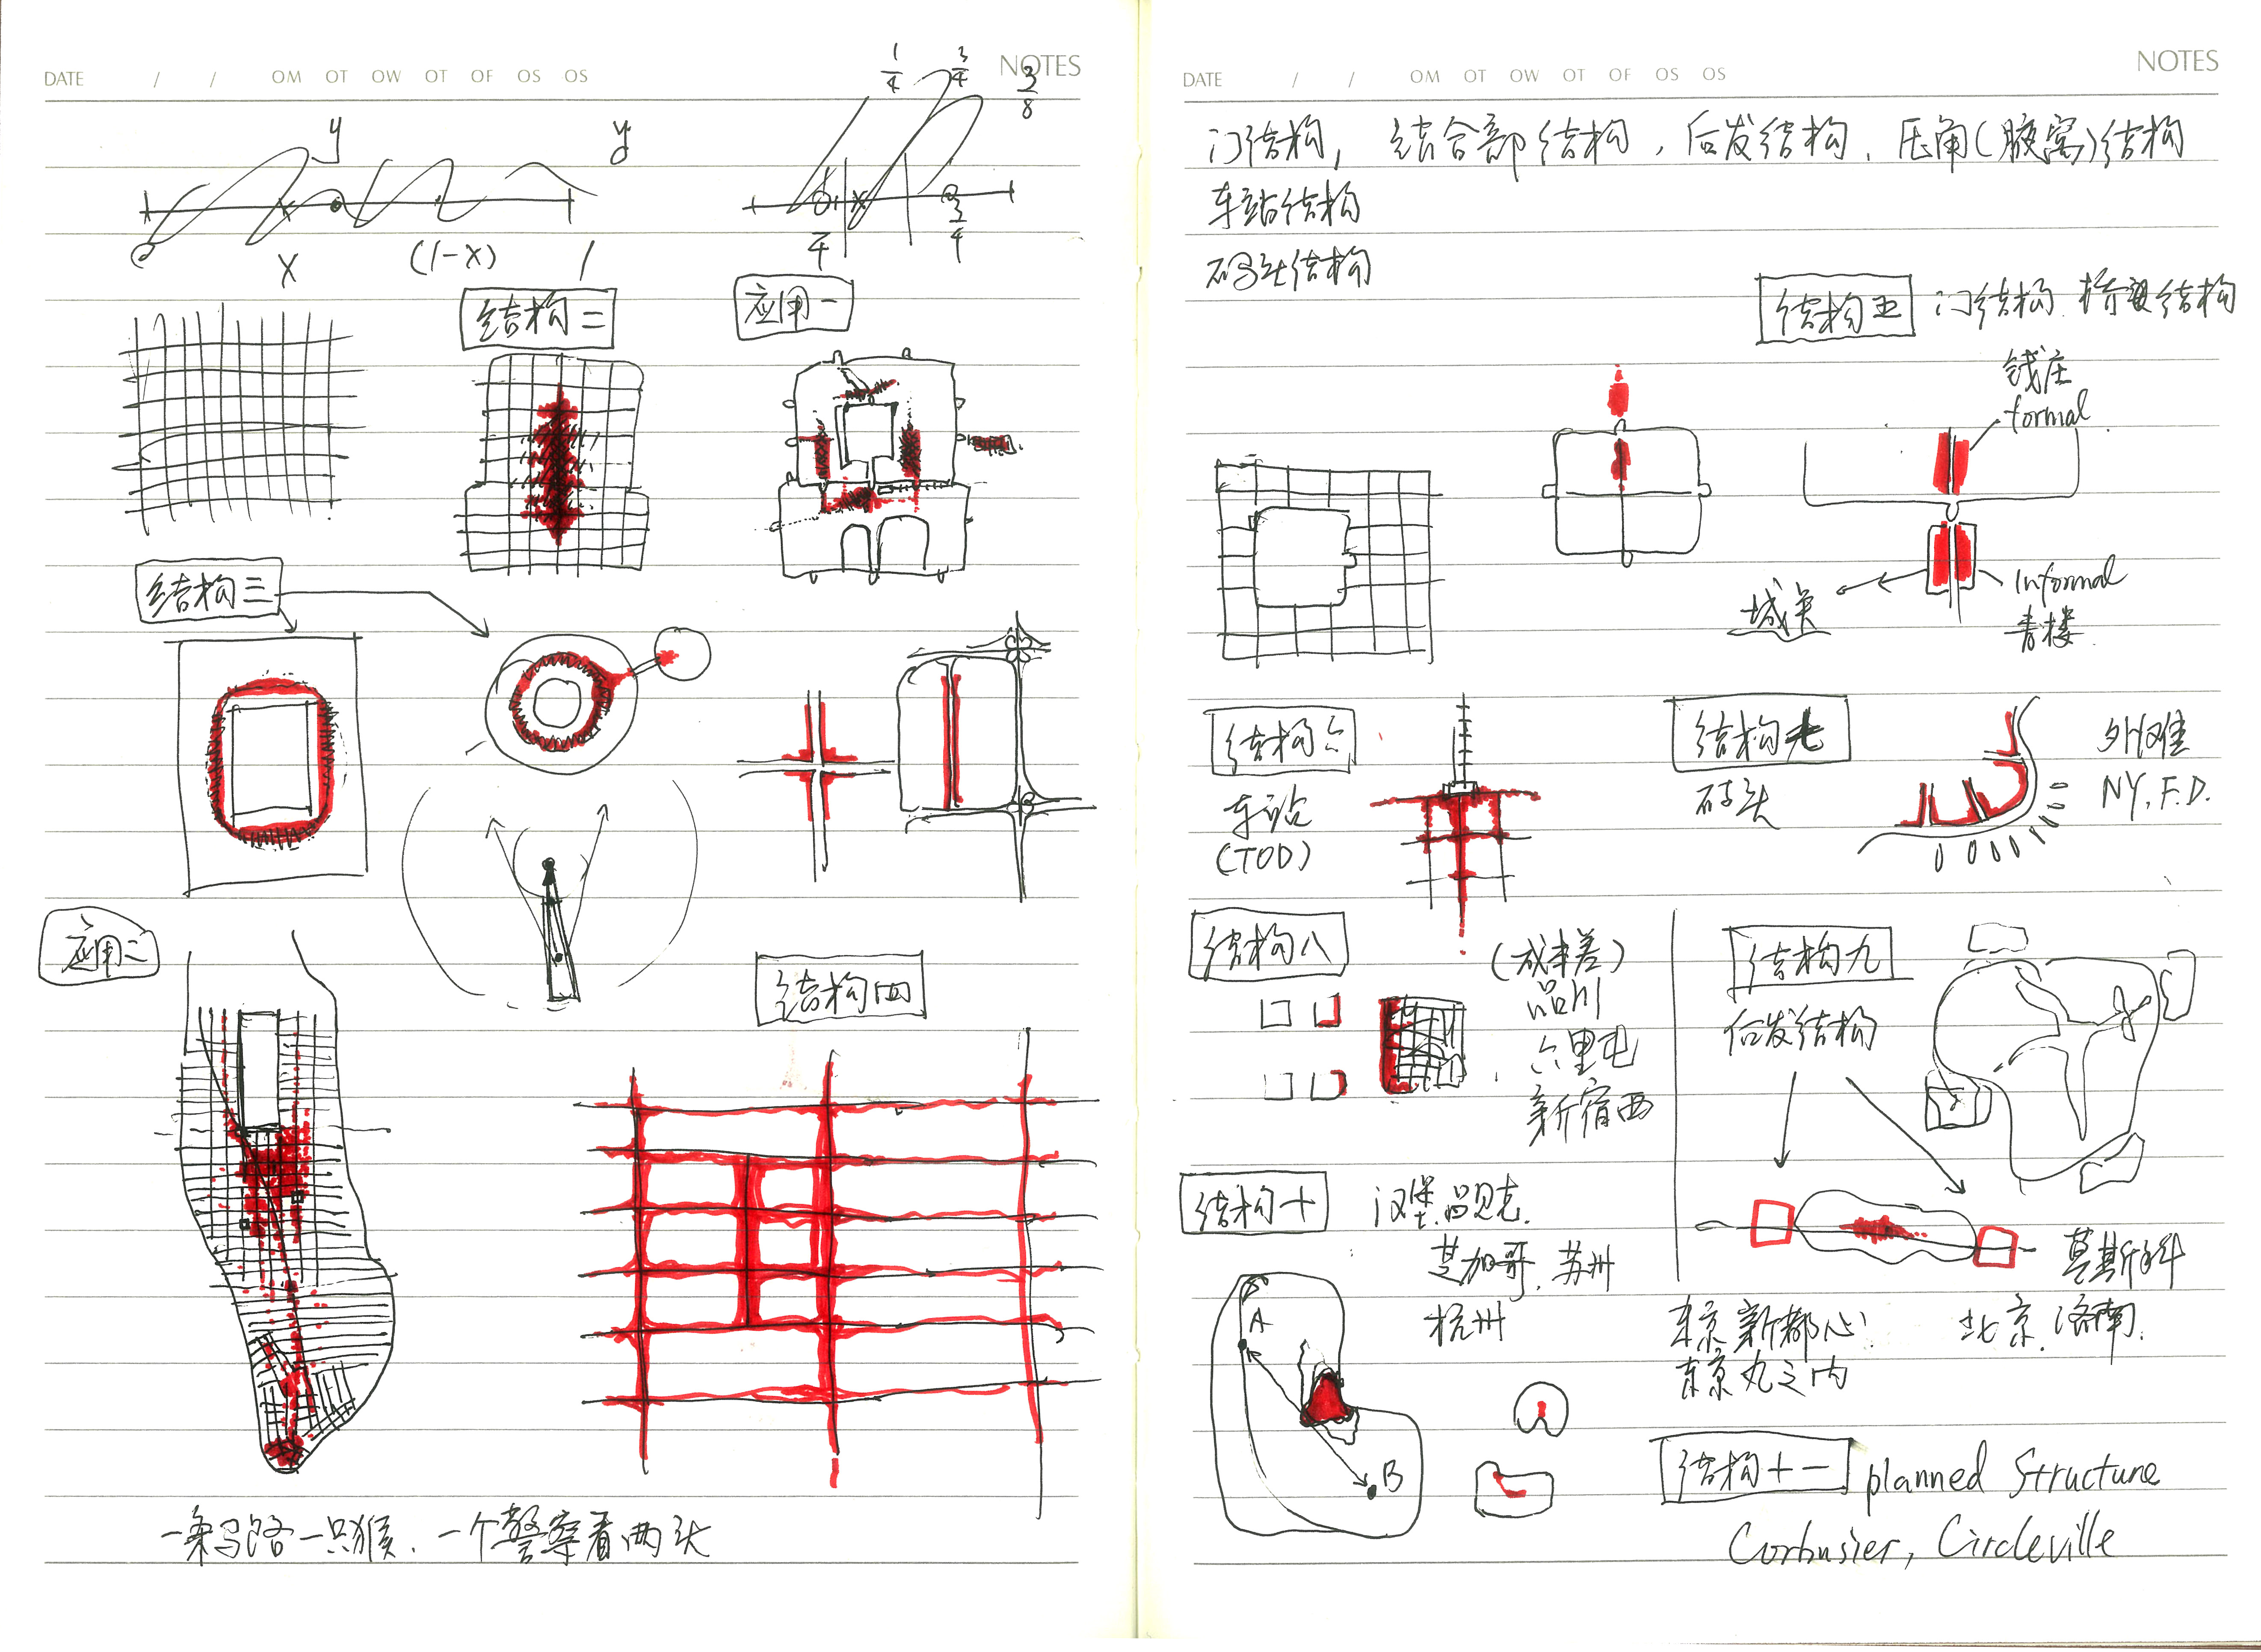 DATE / / OM OT OW OT OF OS OS NOTES
1/4 3/4 3/8
y y
x (1-x) 1
x
3/4
结构二
应用一
结构三
应用二
结构四
一条马路一只猴、一个警察看两头
DATE / / OM OT OW OT OF OS OS NOTES
门结构, 结合部结构, 后发结构, 压角(腋窝)结构
车站结构
码头结构
结构五 门结构. 桥梁结构
钱庄
formal
城关
Informal
青楼
结构六
车站
(TOD)
结构七
码头
外滩
NY. F.D.
结构八
(成本差)
品川
六里屯
新宿西
结构九
后发结构
莫斯科
北京. 济南.
东京新都心
东京丸之内
结构十
汉堡.吕贝克.
芝加哥.苏州
杭州
A
B
结构十一 planned Structure
Corbusier, Circleville